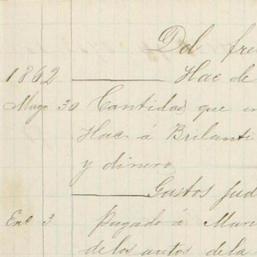 Dol fre
1862 Hac de
Mayo 30 Cantidad que en
Hac. á Brilanti
y dinero
Gastos Jud
Ene 3 pagado á Man
de los autos de la